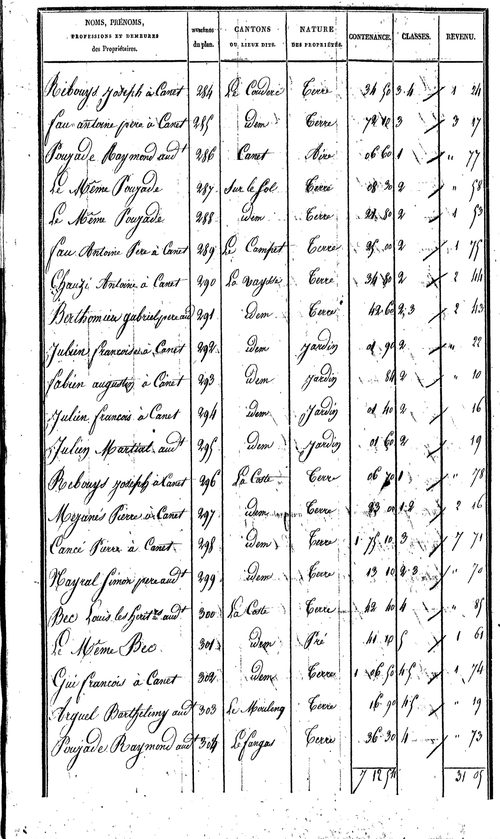 NOMS, PRÉNOMS, PROFESSIONS ET DEMEURES des Propriétaires. NUMÉROS du plan. CANTONS OU LIEUX DITS. NATURE DES PROPRIÉTÉS. CONTENANCE. CLASSES. REVENU.
Rebouys Joseph à Canet 284 Le Couderc Terre 34 50 3.4 1 24
Fau antoine pere à Canet 285 idem Terre 72 10 3 3 17
Poujade Raymond audt 286 Canet Aire 06 60 1 " 77
Le Même Poujade 287 Sur le Sol Terre 08 30 2 " 58
Le Même Poujade 288 idem Terre 21 80 2 1 53
Fau Antoine Pere à Canet 289 Le Campet Terre 25 00 2 1 75
Chauzi Antoine à Canet 290 La Vaysse Terre 34 80 2 2 44
Berthomieu gabriel pere aud 291 idem Terre 42 60 2.3 2 43
Julien francoise à Canet 292 idem Jardin 01 90 2 " 22
Fabien augustin à Canet 293 idem Jardin 84 2 " 10
Julien francois à Canet 294 idem Jardin 01 40 2 16
Julien Martial audt 295 idem Jardin 01 60 2 19
Rebouys Joseph à Canet 296 La Coste Terre 06 70 1 " 78
Mejanés Pierre à Canet 297 idem Terre 23 01 1.2 2 16
Cancé Pierre à Canet 298 idem Terre 1 75 10 3 7 71
Nayral Simon pere audt 299 idem Terre 13 10 2.3 " 70
Bec Louis les heritrs audt 300 La Coste Terre 42 40 4 " 85
Le Même Bec 301 idem Pré 41 10 5 1 61
Gui francois à Canet 302 idem Terre 1 06 50 4.5 1 74
Arquel Barthélimy audt 303 Le Mouleng Terre 16 90 4.5 " 19
Poujade Raymond audt 304 Le fangas Terre 36 30 4 " 73
7 12 54 31 05